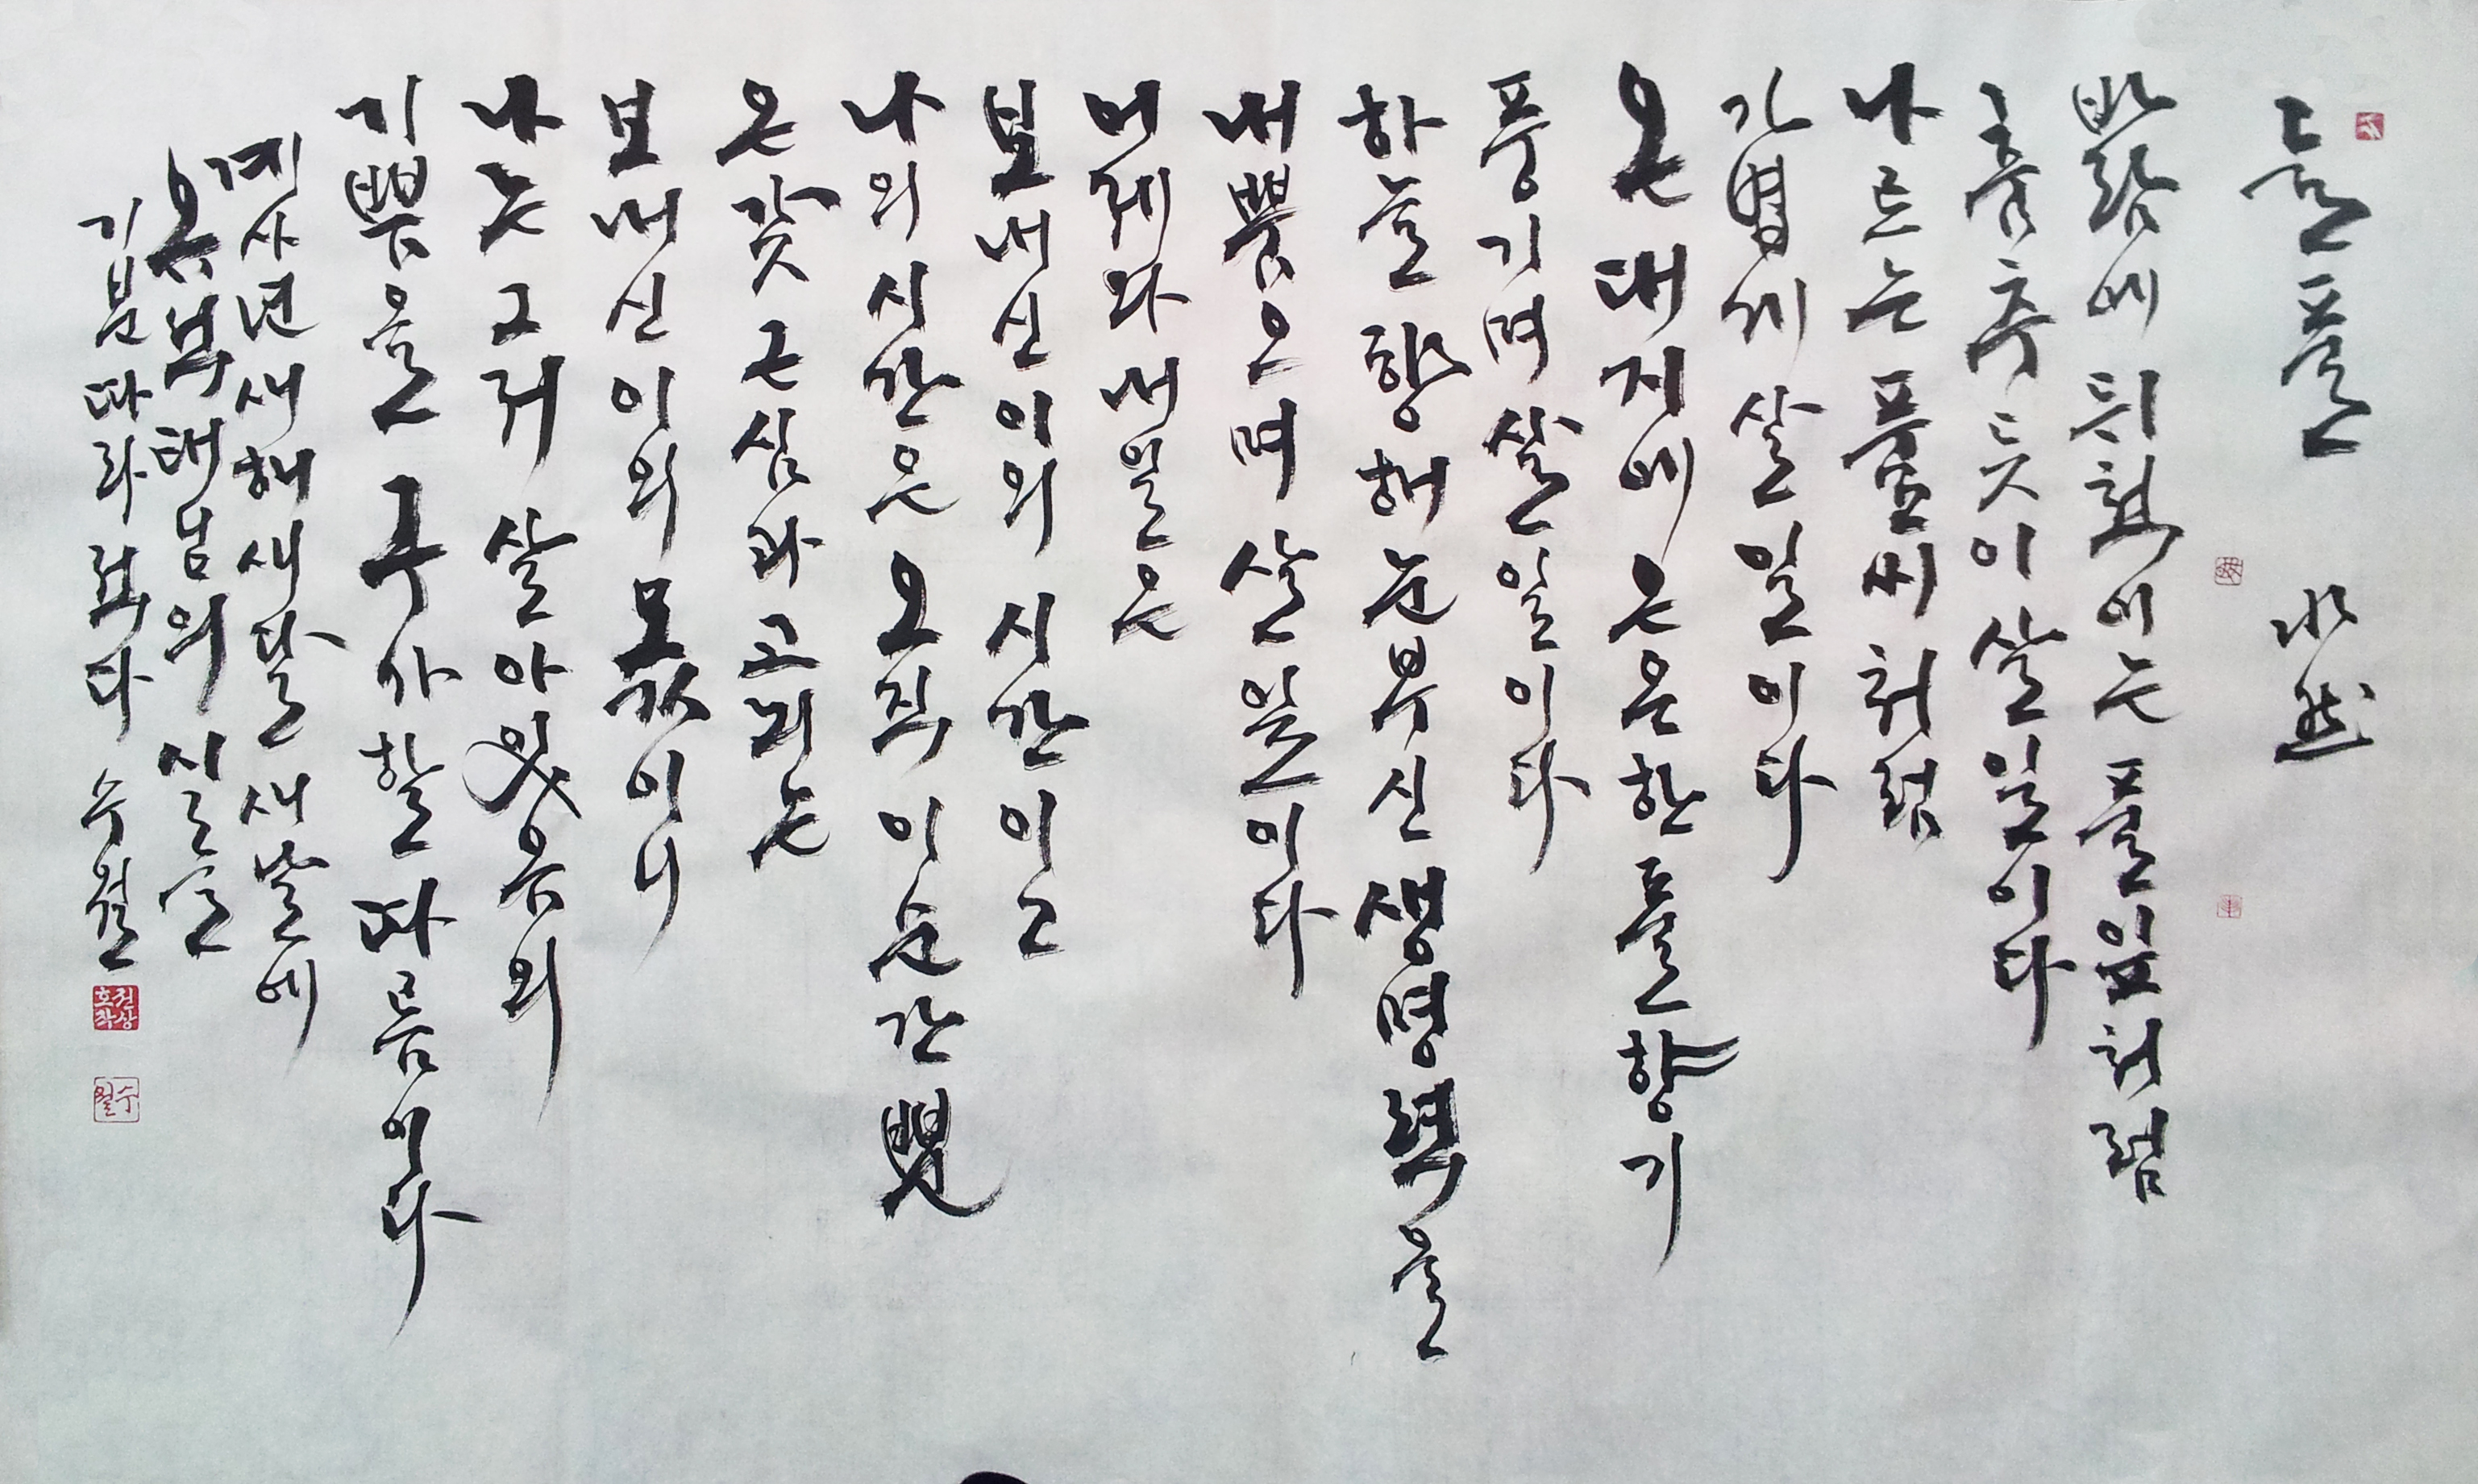 들풀 水然
바람에 뒤척이는 풀잎처럼
춤추듯이 살일이다
나르는 풀씨처럼
가볍게 살일이다
온대지에 은은한 풀향기
풍기며 살일이다
하늘향해 눈부신 생명력을
내뿜으며 살일이다
어제와 내일은
보내신이의 시간이고
나의 시간은 오직 이순간뿐
온갖 근심과 고뇌는
보내신이의 몫이니
나는 그저 살아있음의
기쁨을 구가할 따름이다
계사년 새해 새달 새날에
옴부태님의 시 들풀
기분따라 적다 수월
전상호작
수월